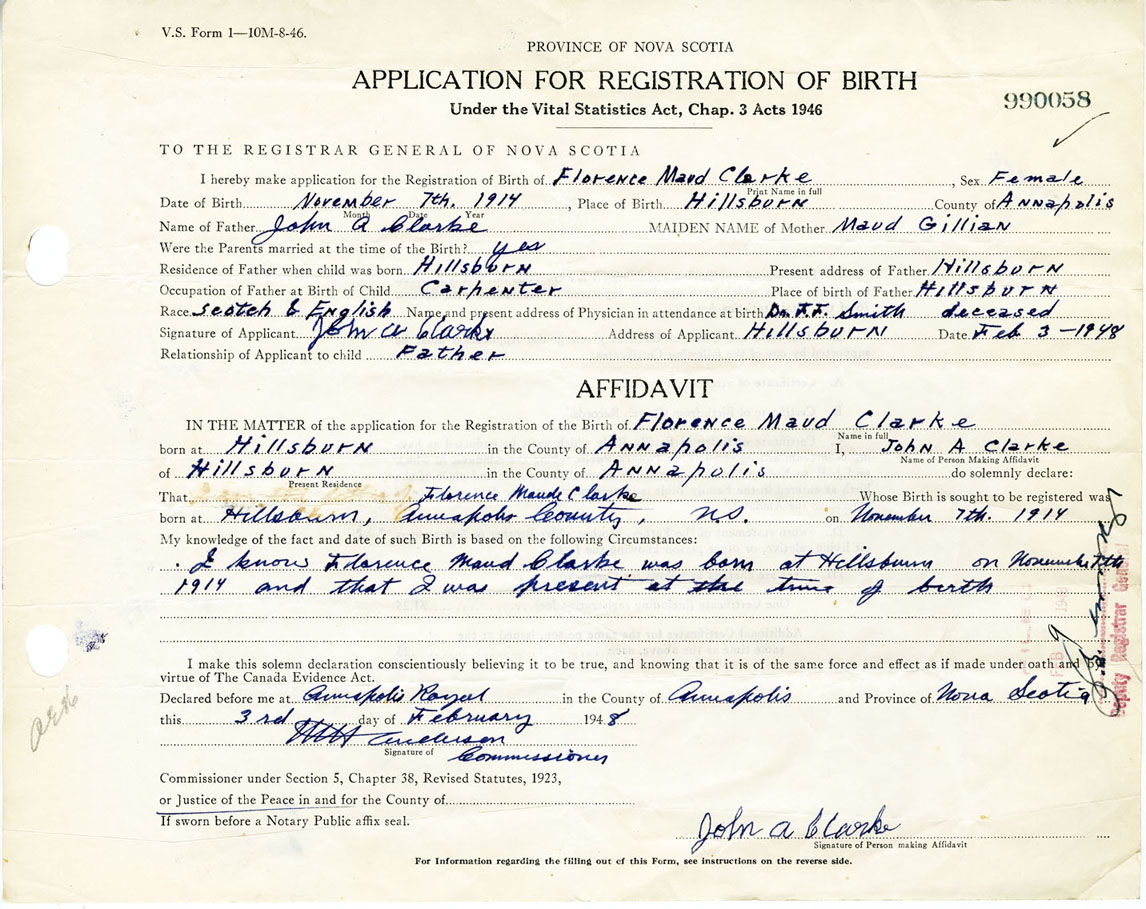 V.S. Form 1—10M-8-46.
PROVINCE OF NOVA SCOTIA
APPLICATION FOR REGISTRATION OF BIRTH
990058
Under the Vital Statistics Act, Chap. 3 Acts 1946
TO THE REGISTRAR GENERAL OF NOVA SCOTIA
I hereby make application for the Registration of Birth of Florence Maud Clarke, Sex Female
Print Name in full
Date of Birth November 7th. 1914, Place of Birth Hillsburn County of Annapolis
Month Date Year
Name of Father John A Clarke MAIDEN NAME of Mother Maud Gillian
Were the Parents married at the time of the Birth? yes
Residence of Father when child was born Hillsburn Present address of Father Hillsburn
Occupation of Father at Birth of Child Carpenter Place of birth of Father Hillsburn
Race Scotch & English Name and present address of Physician in attendance at birth Dr. F.F. Smith deceased
Signature of Applicant John A Clarke Address of Applicant Hillsburn Date Feb 3 - 1948
Relationship of Applicant to child Father
AFFIDAVIT
IN THE MATTER of the application for the Registration of the Birth of Florence Maud Clarke
Name in full
born at Hillsburn in the County of Annapolis I, John A Clarke
Name of Person Making Affidavit
of Hillsburn in the County of Annapolis do solemnly declare:
Present Residence
That Florence Maude Clarke Whose Birth is sought to be registered was
born at Hillsburn, Annapolis County, N.S. on November 7th. 1914
My knowledge of the fact and date of such Birth is based on the following Circumstances:
I know Florence Maud Clarke was born at Hillsburn on November 7th
1914 and that I was present at the time of birth
I make this solemn declaration conscientiously believing it to be true, and knowing that it is of the same force and effect as if made under oath and by
virtue of The Canada Evidence Act.
Declared before me at Annapolis Royal in the County of Annapolis and Province of Nova Scotia
this 3rd day of February 1948
Anderson
Signature of Commissioner
Commissioner under Section 5, Chapter 38, Revised Statutes, 1923,
or Justice of the Peace in and for the County of
If sworn before a Notary Public affix seal.
John A Clarke
Signature of Person making Affidavit
For Information regarding the filling out of this Form, see instructions on the reverse side.
Deputy Registrar General